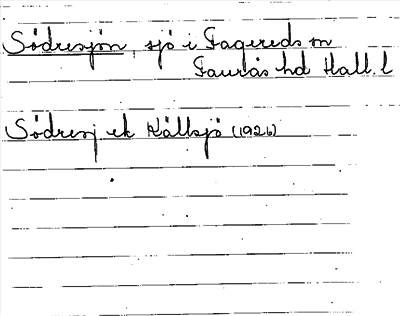 Södresjön, sjö i Fagereds sn
Faurås hd Hall. l
Södresj ek Källsjö (1926)